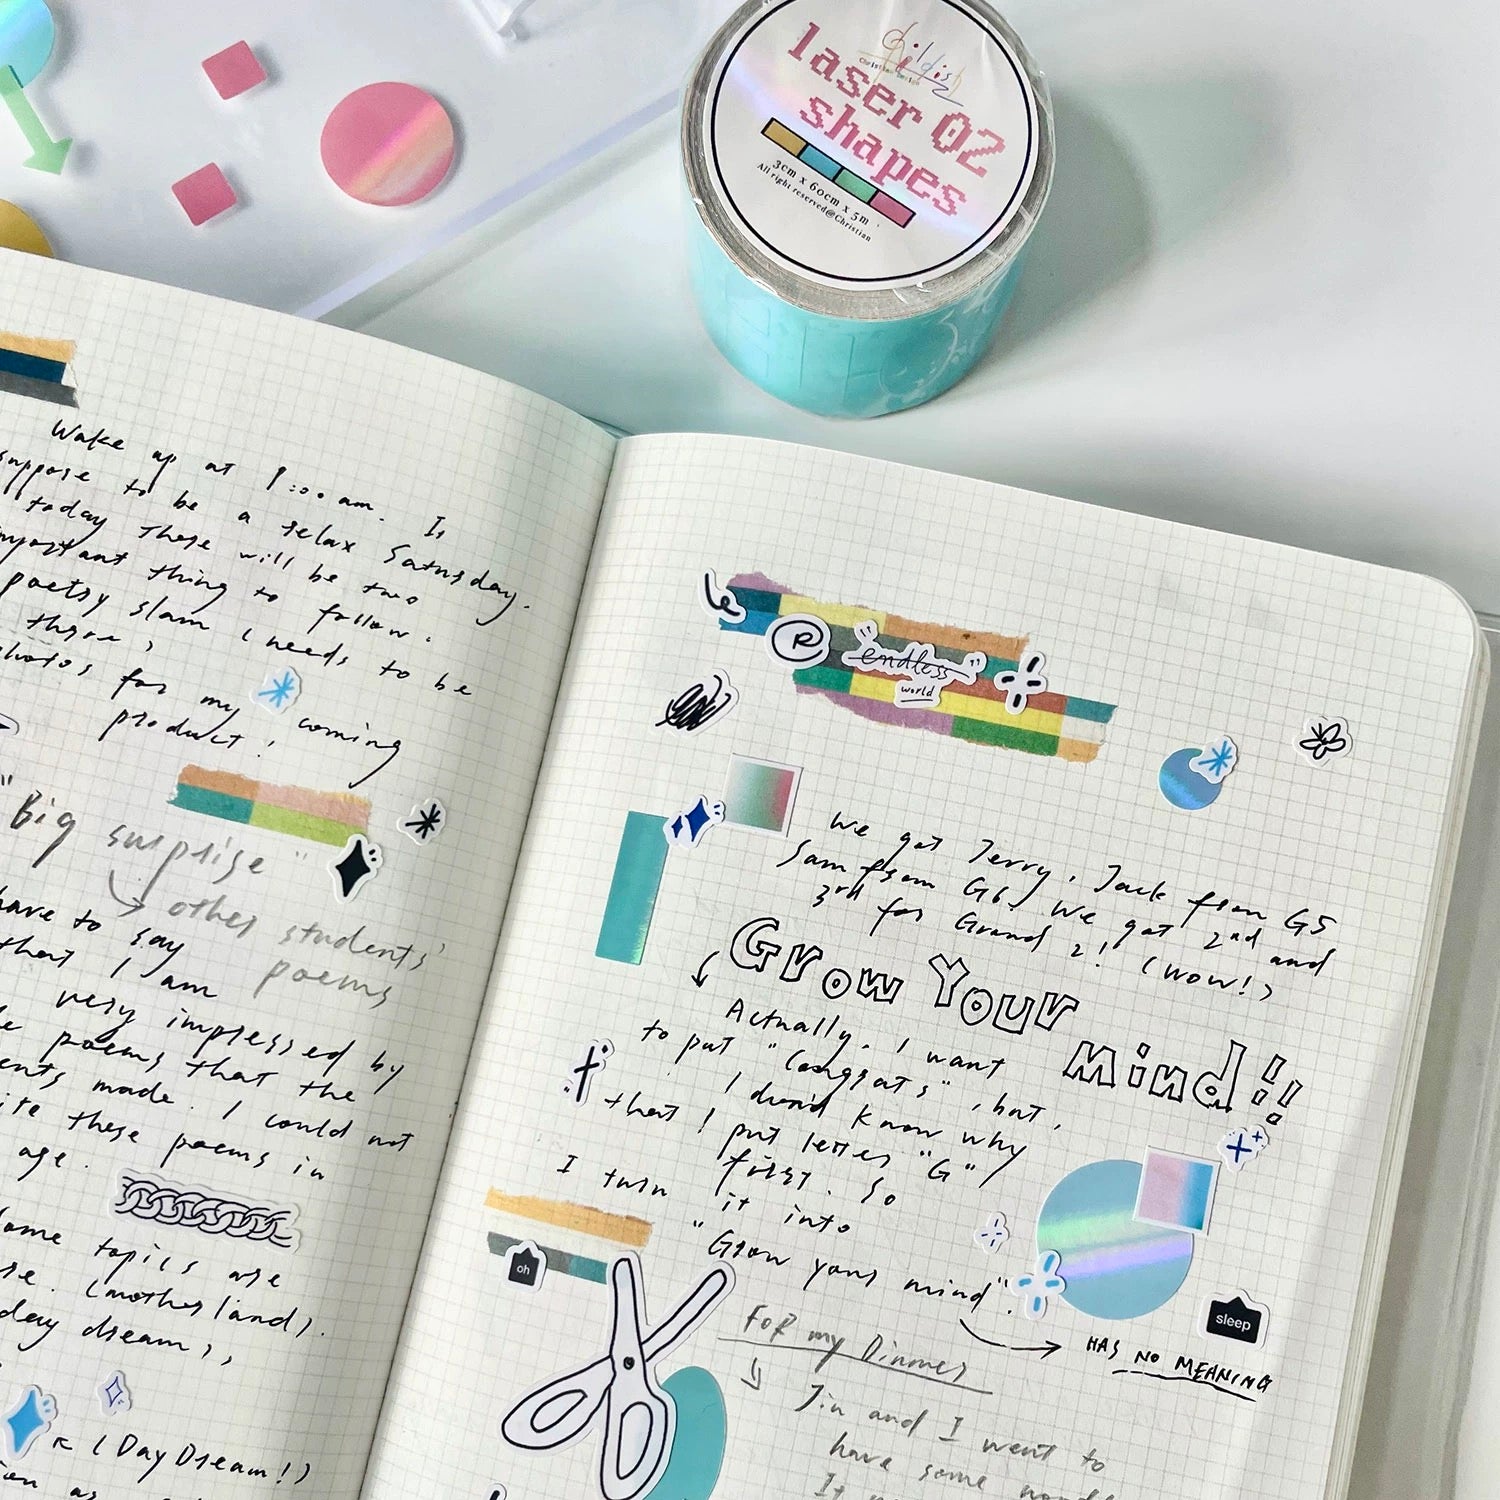 Childish
Christian Design
laser 02
shapes
3cm x 60cm x 5m
All right reserved@Christian
Wake up at 8:00 am. Is
suppose to be a relax Saturday.
today there will be two
important thing to follow.
poetry slam (needs to be
there)
photos for my coming
product!
"Big surprise"
other students'
poems
have to say
that I am
very impressed by
poems that the
made. I could not
these poems in
age.
Some topics are
(motherland).
day dream,,
(Day Dream!)
as
R
"endless"
world
We got Jerry, Jack from G5
Sam from G6. We got 2nd and
3rd for Grand 2! (wow!)
Grow Your
Mind!!
Actually, I want
to put "Congrats", but,
I dun't know why
that I put letter "G"
first. So
I turn it into
"Grow your mind".
HAS NO MEANING
oh
sleep
For my Dinner
Jin and I went to
have some
It